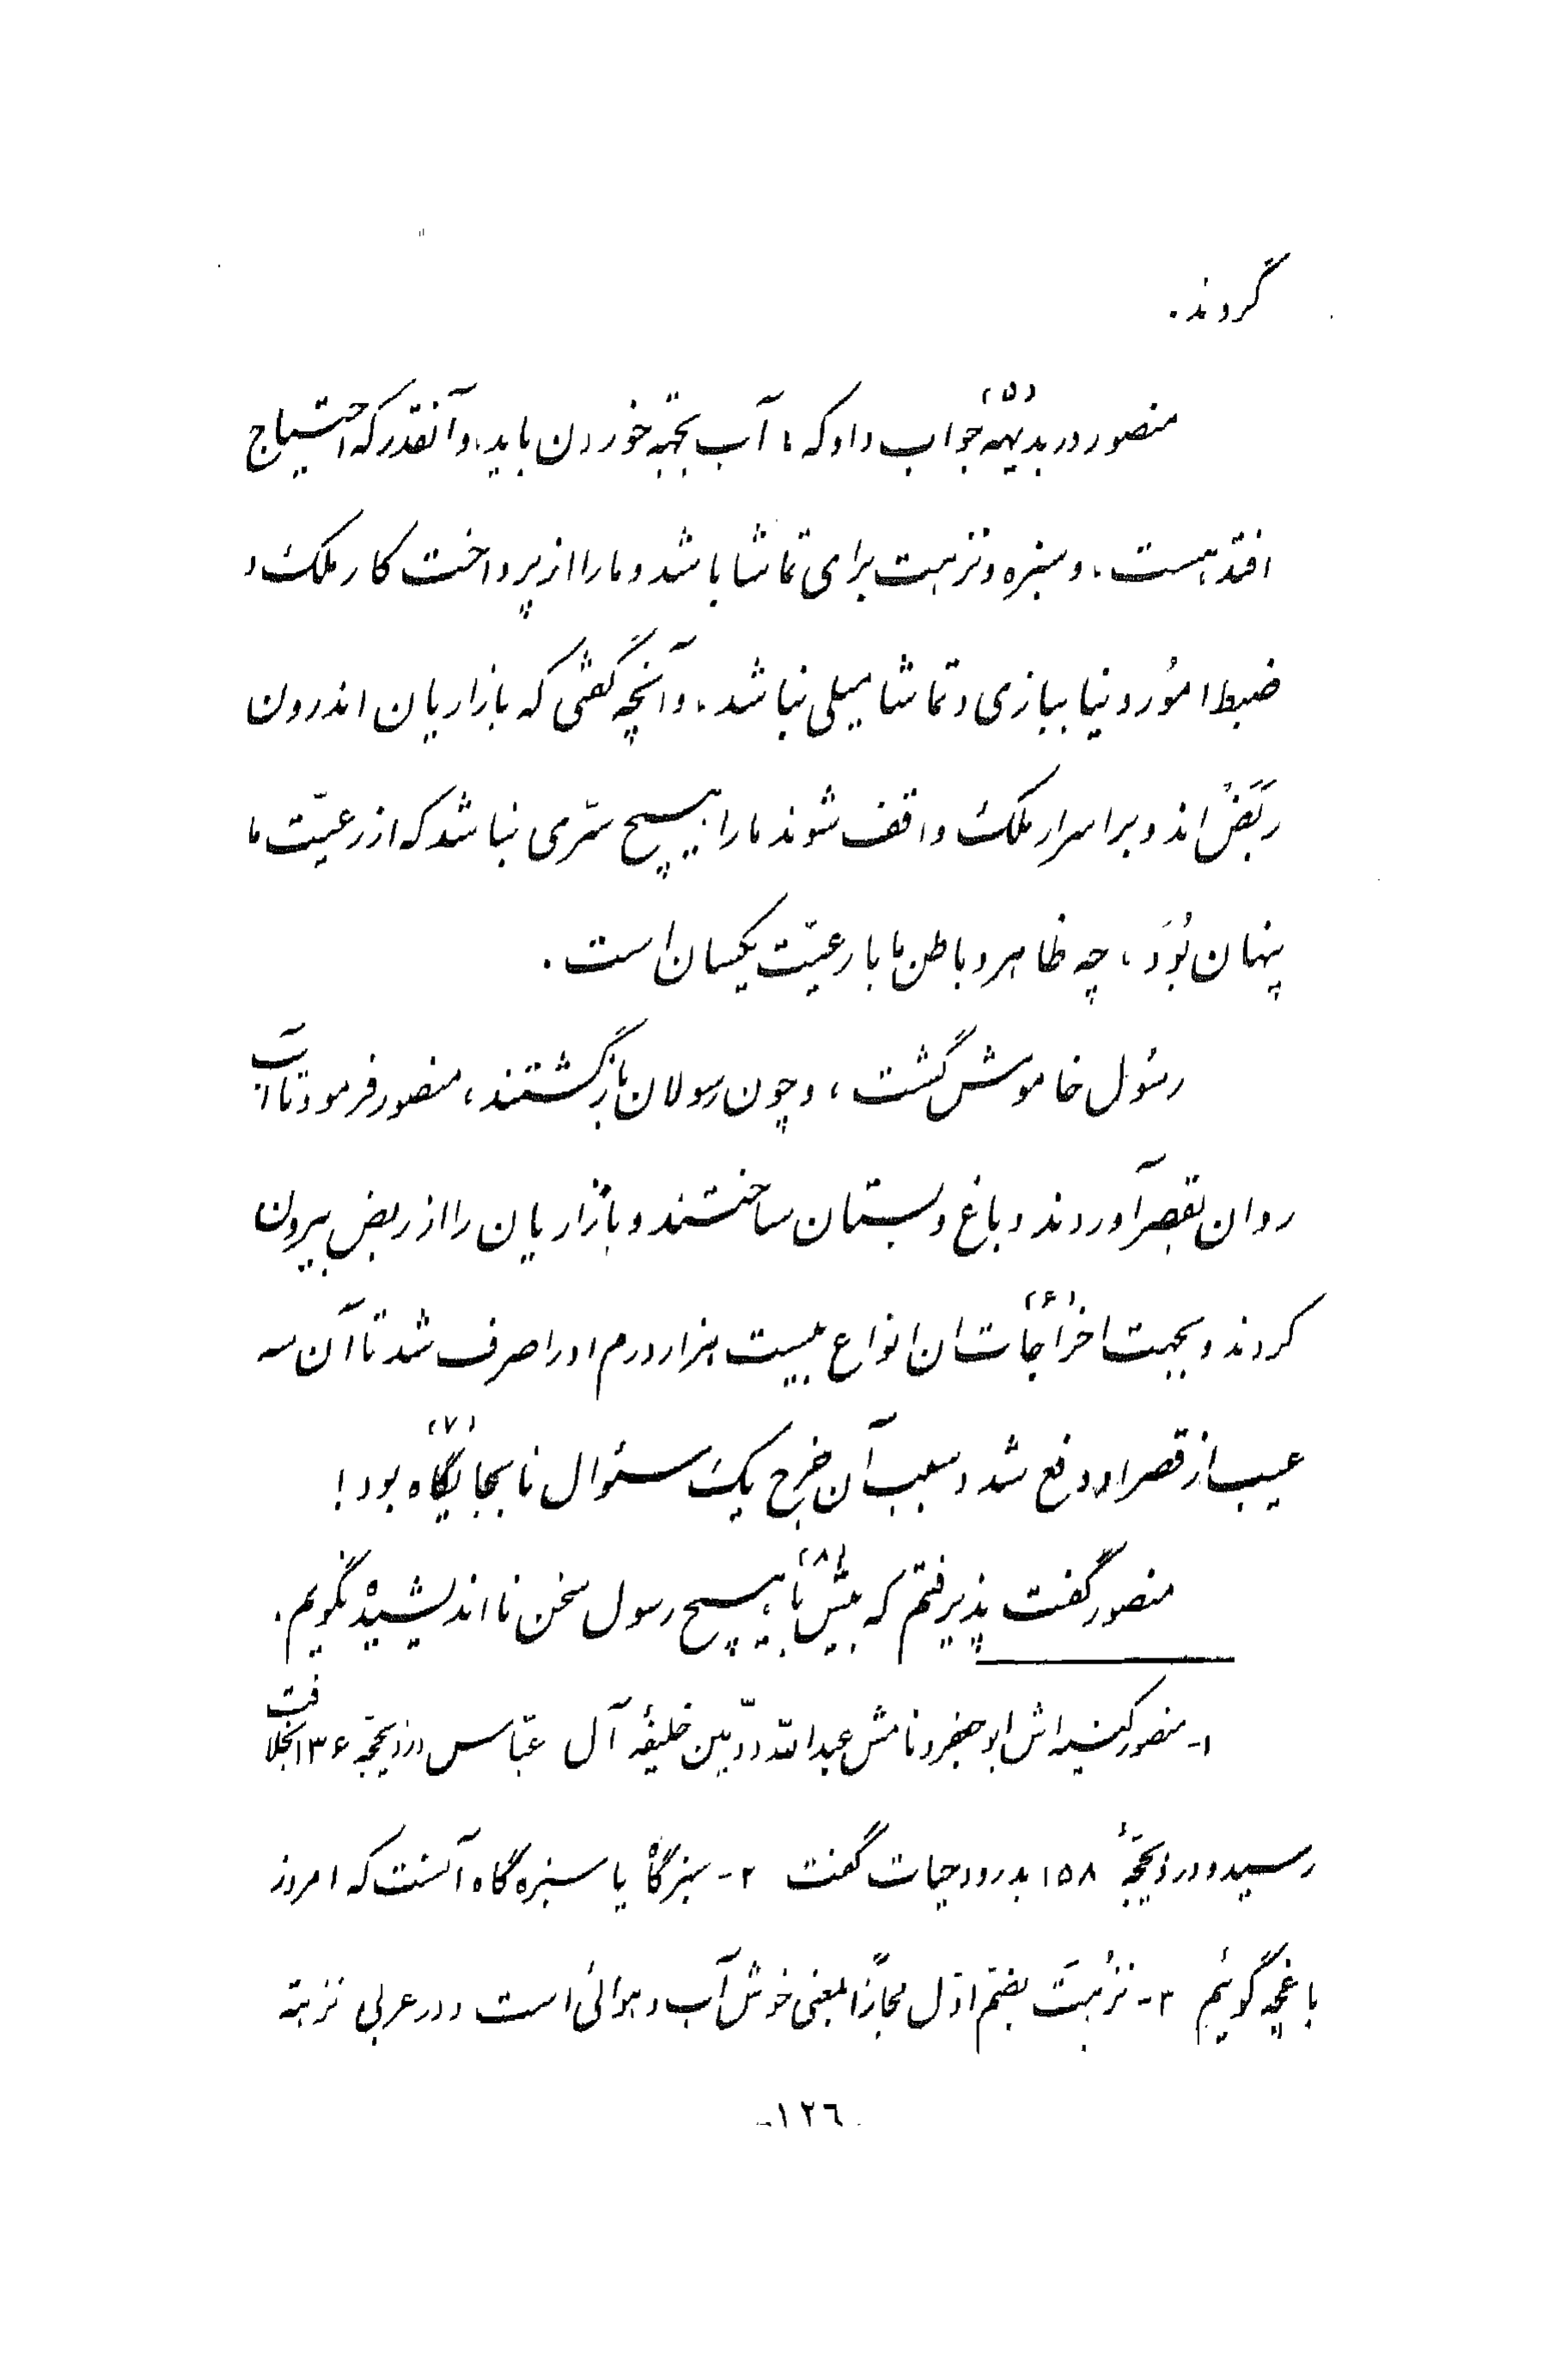 گردند.
منصور در بدیهه (۵) جواب داد که، آب بجهة خوردن باید، و آنقدر که احتیاج
افتد هست، و سبزه و نزهت برای تماشا باشد و ما را از پرداخت کار ملک و
ضبط امُور دنیا ببازی و تماشا میلی نباشد، و آنچه گفتی که بازاریان اندرون
رَبَض‌اند و بر اسرار ملک واقف شوند ما را هیچ سرّی نباشد که از رعیّت ما
پنهان بُوَد، چه ظاهر و باطن ما با رعیّت یکسان است.
رسُول خاموش گشت، و چون رسولان بازگشتند، منصور فرمود تا آب
روان بقصر آوردند و باغ و بستان ساختند و بازاریان را از ربض بیرون
کردند و بجهت اخراجات (۶) ان انواع بیست هزار درم او را صرف شد تا آن سه
عیب از قصر او دفع شد و سبب آن خرج یک سئوال نابجایگاه (۷) بود!
منصور گفت پذیرفتم که بیش با (۸) هیچ رسول سخن نااندیشیده نگویم.
۱- منصور کنیه‌اش ابوجعفر و نامش عبدالله دوّمین خلیفهٔ آل عبّاس در ذیحجّه ۱۳۶ بخلافت
رسید و در ذیحجّهٔ ۱۵۸ بدرود حیات گفت ۲- سبزگاه یا سبزه گاه آنست که امروز
باغچه گوئیم ۳- نُزهَت بضمّ اوّل مجازاً بمعنی خوش آب و هوائی است و در عربی نزهة
-١٢٦-